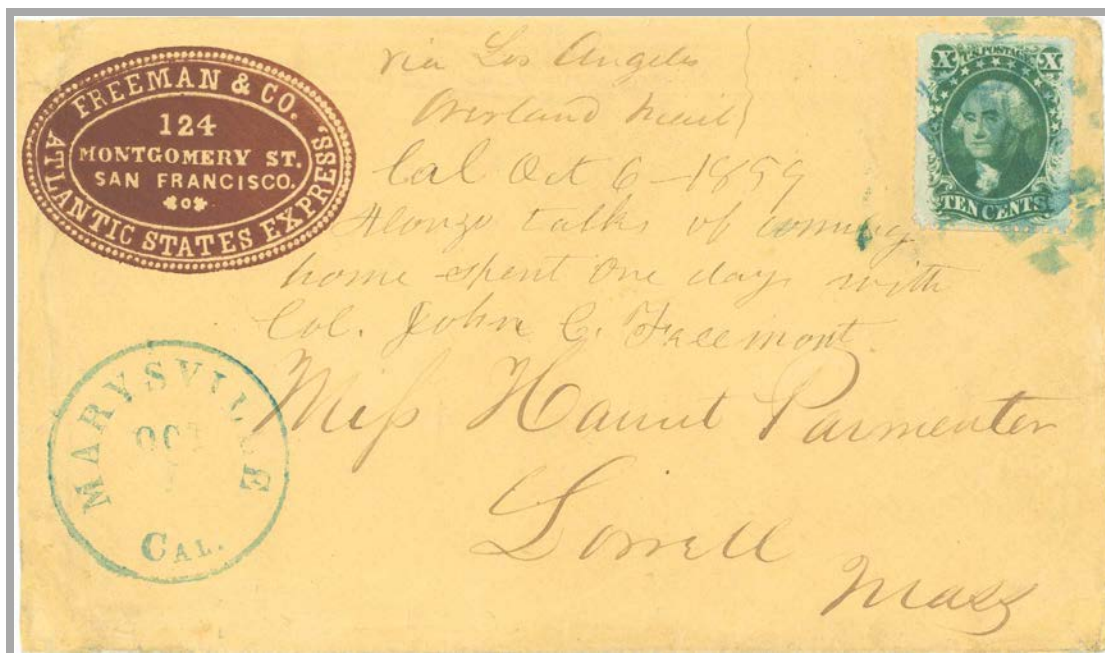 FREEMAN & CO.
124
MONTGOMERY ST.
SAN FRANCISCO.
ATLANTIC STATES EXPRESS.
via Los Angeles
Overland Mail
X U.S. POSTAGE X
TEN CENTS
Cal Oct 6 - 1859
Alonzo talks of coming
home spent one day with
Col. John C. Freemont
Miss Harriet Parmenter
Lowell
Mass
MARYSVILLE
OCT
CAL.